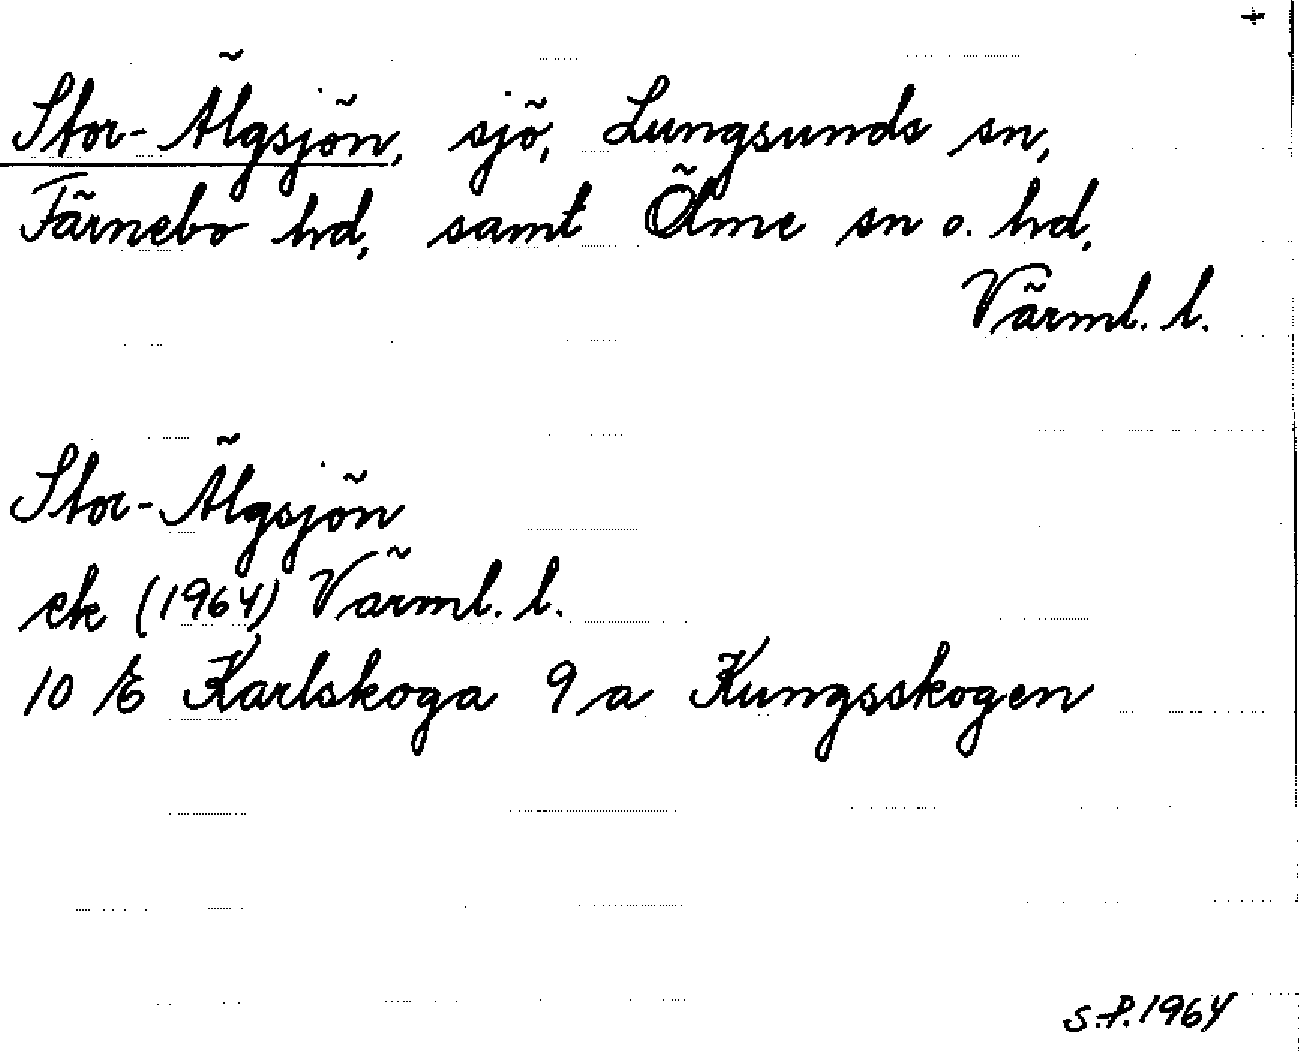 +
Stor-Älgsjön, sjö, Lungsunds sn,
Färnebo hd, samt Ölme sn o. hd,
Värml. l.
Stor-Älgsjön
ek (1964) Värml. l.
10 E Karlskoga 9 a Kungsskogen
S.P. 1964